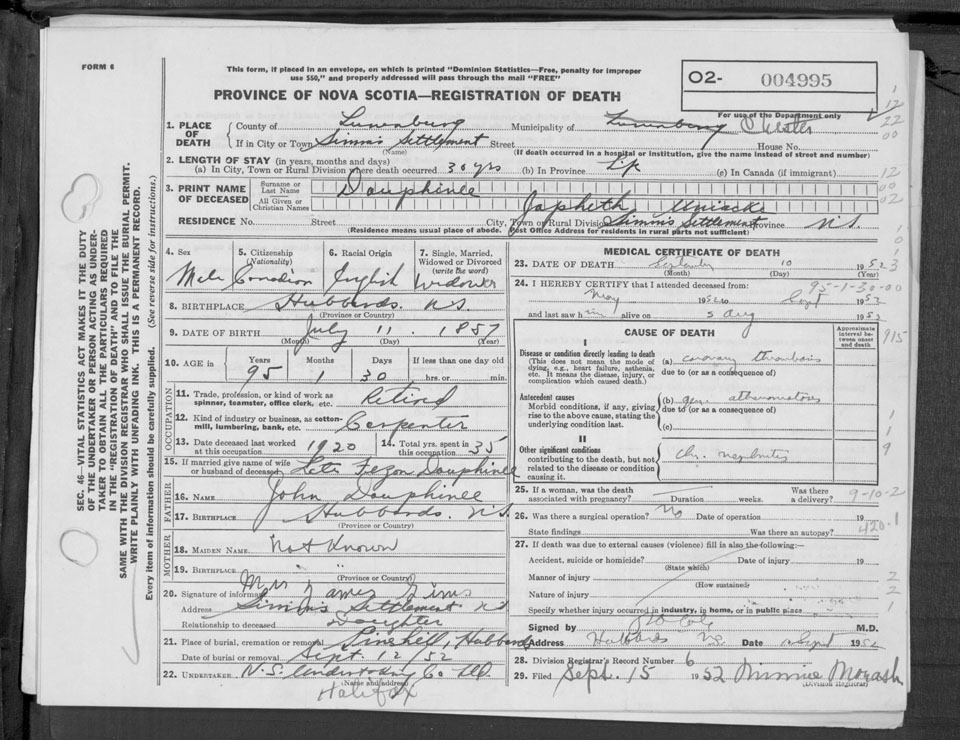 FORM 6
This form, if placed in an envelope, on which is printed "Dominion Statistics—Free, penalty for improper
use $50," and properly addressed will pass through the mail "FREE"
O2- 004995
PROVINCE OF NOVA SCOTIA—REGISTRATION OF DEATH
For use of the Department only
1. PLACE OF DEATH { County of Lunenburg Municipality of Lunenburg Chester
If in City or Town Simms Settlement Street House No.
(Name) (If death occurred in a hospital or institution, give the name instead of street and number)
2. LENGTH OF STAY (in years, months and days)
(a) In City, Town or Rural Division where death occurred 30 yrs (b) In Province Life (c) In Canada (if immigrant)
3. PRINT NAME OF DECEASED { Surname or Last Name Dauphinee
All Given or Christian Names Japheth Uniacke
RESIDENCE No. Street City, Town or Rural Division Simms Settlement Province N.S.
(Residence means usual place of abode. Post Office Address for residents in rural parts not sufficient)
4. Sex Male
5. Citizenship (Nationality) Canadian
6. Racial Origin English
7. Single, Married, Widowed or Divorced (write the word) Widower
8. BIRTHPLACE Hubbards. N.S.
(Province or Country)
9. DATE OF BIRTH July 11. 1857
(Month) (Day) (Year)
10. AGE in { Years 95 Months 1 Days 30 If less than one day old hrs. or min.
OCCUPATION
11. Trade, profession, or kind of work as spinner, teamster, office clerk, etc. Retired
12. Kind of industry or business, as cotton-mill, lumbering, bank, etc. Carpenter
13. Date deceased last worked at this occupation 1920
14. Total yrs. spent in this occupation 35
15. If married give name of wife or husband of deceased Leta Dauphinee
FATHER
16. NAME John Dauphinee
17. BIRTHPLACE Hubbards. N.S.
(Province or Country)
MOTHER
18. MAIDEN NAME Not Known
19. BIRTHPLACE
(Province or Country)
20. Signature of informant Mrs James Sims
Address Simms Settlement NS
Relationship to deceased Daughter
21. Place of burial, cremation or removal Hubbards
Date of burial or removal Sept. 12/52
22. UNDERTAKER N.S. Undertaking Co Ltd.
(Name and address)
Halifax
MEDICAL CERTIFICATE OF DEATH
23. DATE OF DEATH September 10 1952
(Month) (Day) (Year)
95-1-30-00
24. I HEREBY CERTIFY that I attended deceased from:
May 1952 to Sept 1952
and last saw him alive on 5 Aug 1952
CAUSE OF DEATH
Approximate interval between onset and death
I
Disease or condition directly leading to death
(This does not mean the mode of dying, e.g., heart failure, asthenia, etc. It means the disease, injury, or complication which caused death.)
(a) coronary thrombosis
due to (or as a consequence of)
Antecedent causes
Morbid conditions, if any, giving rise to the above cause, stating the underlying condition last.
(b) gen atheromatous
due to (or as a consequence of)
(c)
II
Other significant conditions
contributing to the death, but not related to the disease or condition causing it.
Chr. nephritis
25. If a woman, was the death associated with pregnancy? Duration weeks. Was there a delivery?
9-10-2
26. Was there a surgical operation? No Date of operation 19
State findings Was there an autopsy?
420.1
27. If death was due to external causes (violence) fill in also the following:—
Accident, suicide or homicide? Date of injury 19
(State which)
Manner of injury
(How sustained)
Nature of injury
Specify whether injury occurred in industry, in home, or in public place
Signed by M.D.
Address Hubbards N.S. Date Sept 1952
28. Division Registrar's Record Number 6
29. Filed Sept. 15 1952 Minnie Morash
(Division Registrar)
SEC. 46—VITAL STATISTICS ACT MAKES IT THE DUTY
OF THE UNDERTAKER OR PERSON ACTING AS UNDER-
TAKER TO OBTAIN ALL THE PARTICULARS REQUIRED
IN THE "REGISTRATION OF DEATH" AND TO FILE THE
SAME WITH THE DIVISION REGISTRAR WHO SHALL ISSUE THE BURIAL PERMIT.
WRITE PLAINLY WITH UNFADING INK. THIS IS A PERMANENT RECORD.
Every item of information should be carefully supplied. (See reverse side for instructions.)